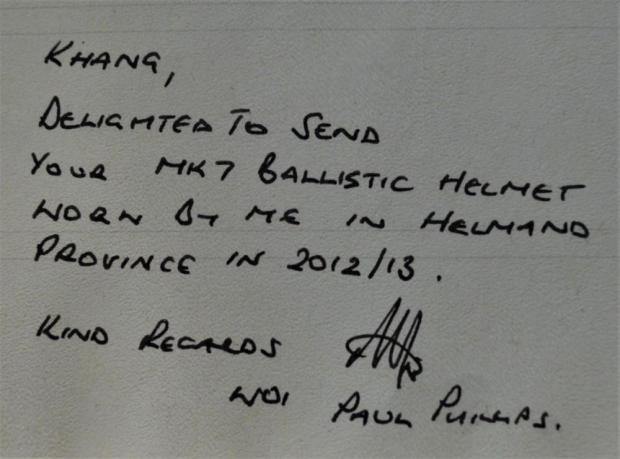 KHANG,
DELIGHTED TO SEND
YOUR MK7 BALLISTIC HELMET
WORN BY ME IN HELMAND
PROVINCE IN 2012/13.
KIND REGARDS
WO1 PAUL PHILLIPS.